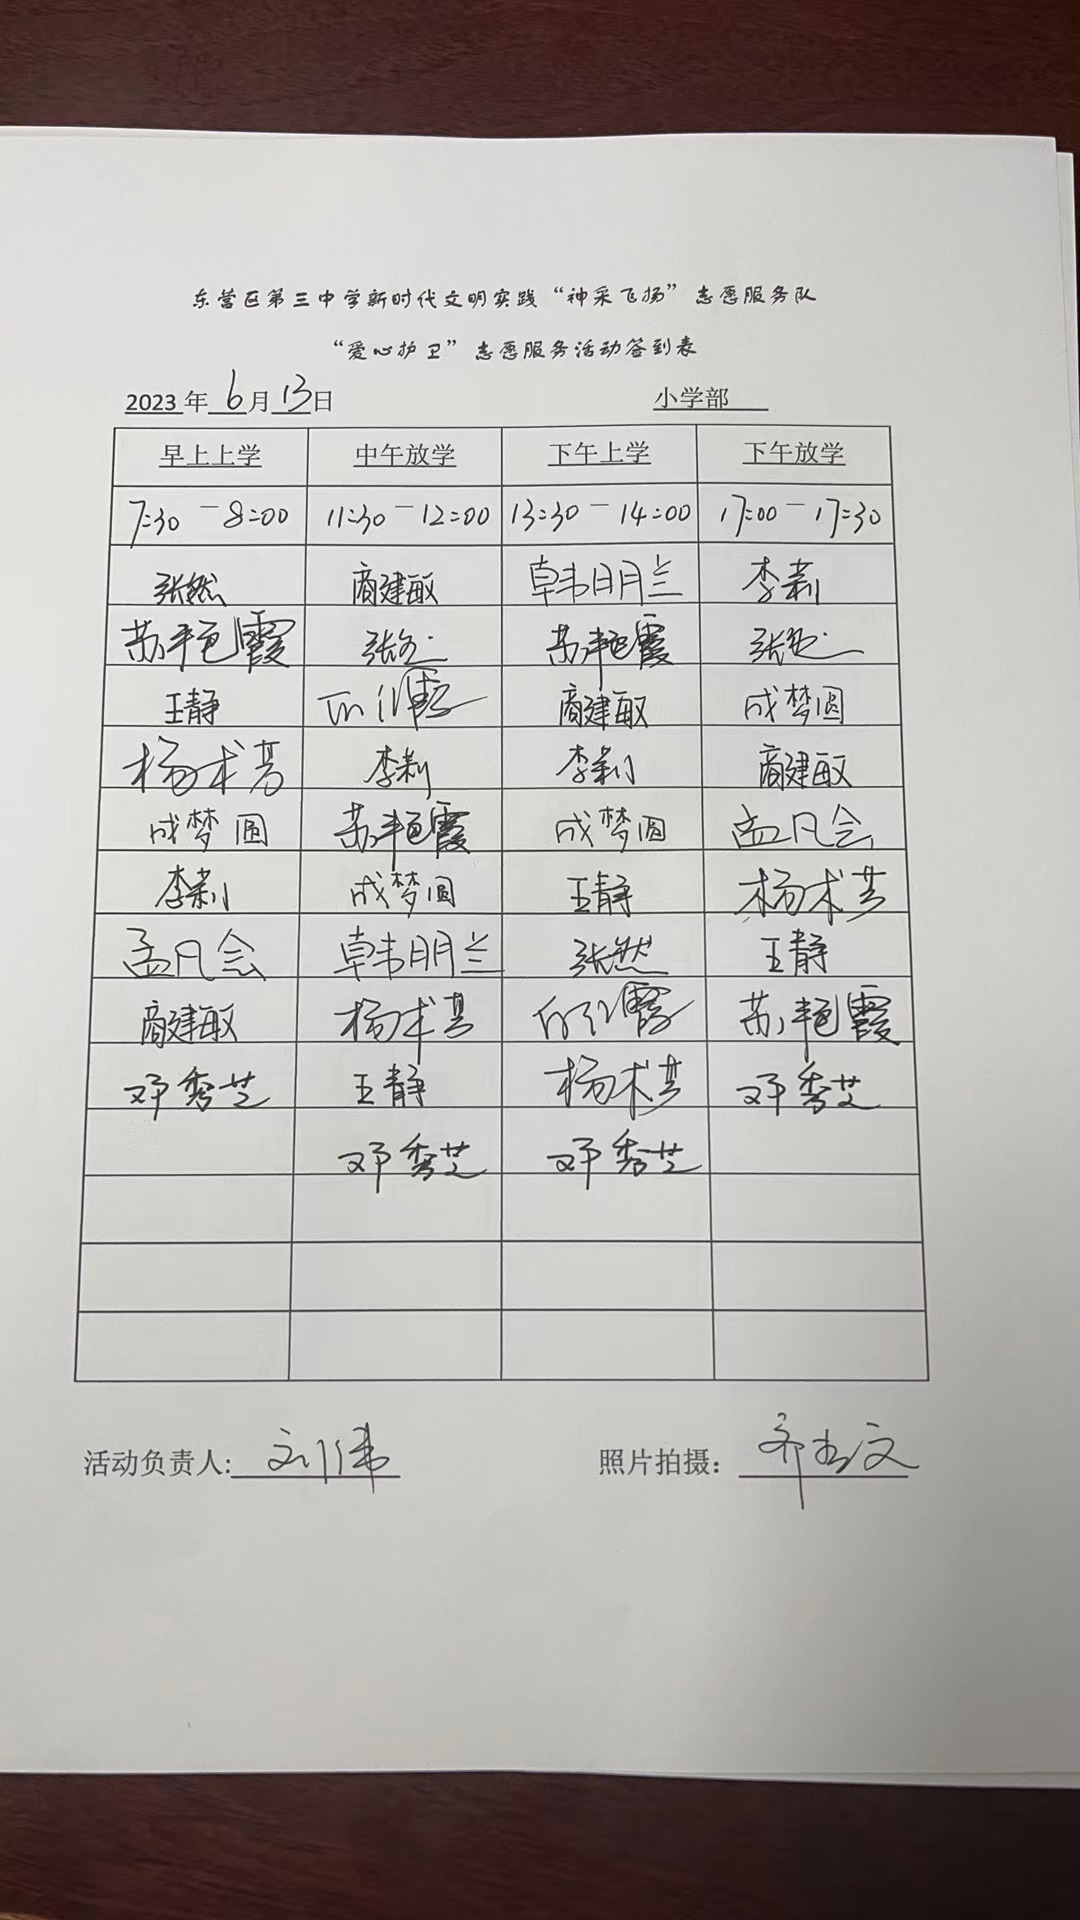 东营区第三中学新时代文明实践“神采飞扬”志愿服务队
“爱心护卫”志愿服务活动签到表
2023年 6月 13日 小学部
早上上学 中午放学 下午上学 下午放学
7:30-8:00 11:30-12:00 13:30-14:00 17:00-17:30
张然 商建敏 韩朋兰 李莉
苏艳霞 张 苏艳霞 张
王静 商建敏 成梦圆
杨术芳 李莉 李莉 商建敏
成梦圆 苏艳霞 成梦圆 孟凡会
李莉 成梦圆 王静 杨术芳
孟凡会 韩朋兰 张然 王静
商建敏 杨术芳 霞 苏艳霞
邓秀芝 王静 杨术芳 邓秀芝
邓秀芝 邓秀芝
活动负责人: 刘伟 照片拍摄: 文